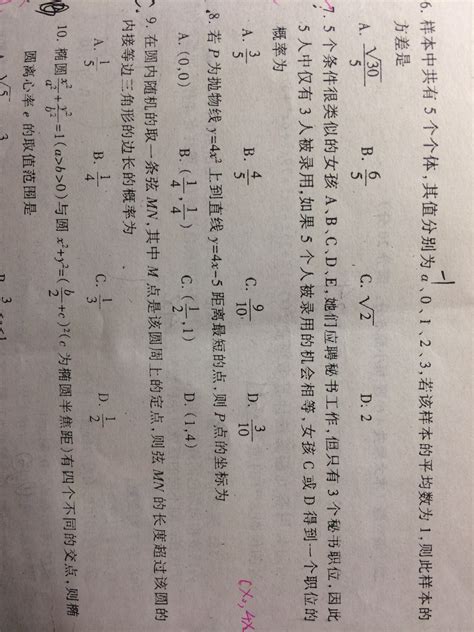 6. 样本中共有 5 个个体,其值分别为 a、0、1、2、3,若该样本的平均数为 1,则此样本的
-1
方差是
A. √30/5 B. 6/5 C. √2 D. 2
7. 5 个条件很类似的女孩 A、B、C、D、E,她们应聘秘书工作,但只有 3 个秘书职位,因此
5 人中仅有 3 人被录用,如果 5 个人被录用的机会相等,女孩 C 或 D 得到一个职位的
概率为
A. 3/5 B. 4/5 C. 9/10 D. 3/10
8. 若 P 为抛物线 y=4x² 上到直线 y=4x-5 距离最短的点,则 P 点的坐标为
A. (0,0) B. (1/4,1/4) C. (1/2,1) D. (1,4)
9. 在圆内随机的取一条弦 MN,其中 M 点是该圆周上的定点,则弦 MN 的长度超过该圆的
内接等边三角形的边长的概率为
A. 1/5 B. 1/4 C. 1/3 D. 1/2
10. 椭圆 x²/a²+y²/b²=1(a>b>0)与圆 x²+y²=(b/2+c)²(c 为椭圆半焦距)有四个不同的交点,则椭
圆离心率 e 的取值范围是